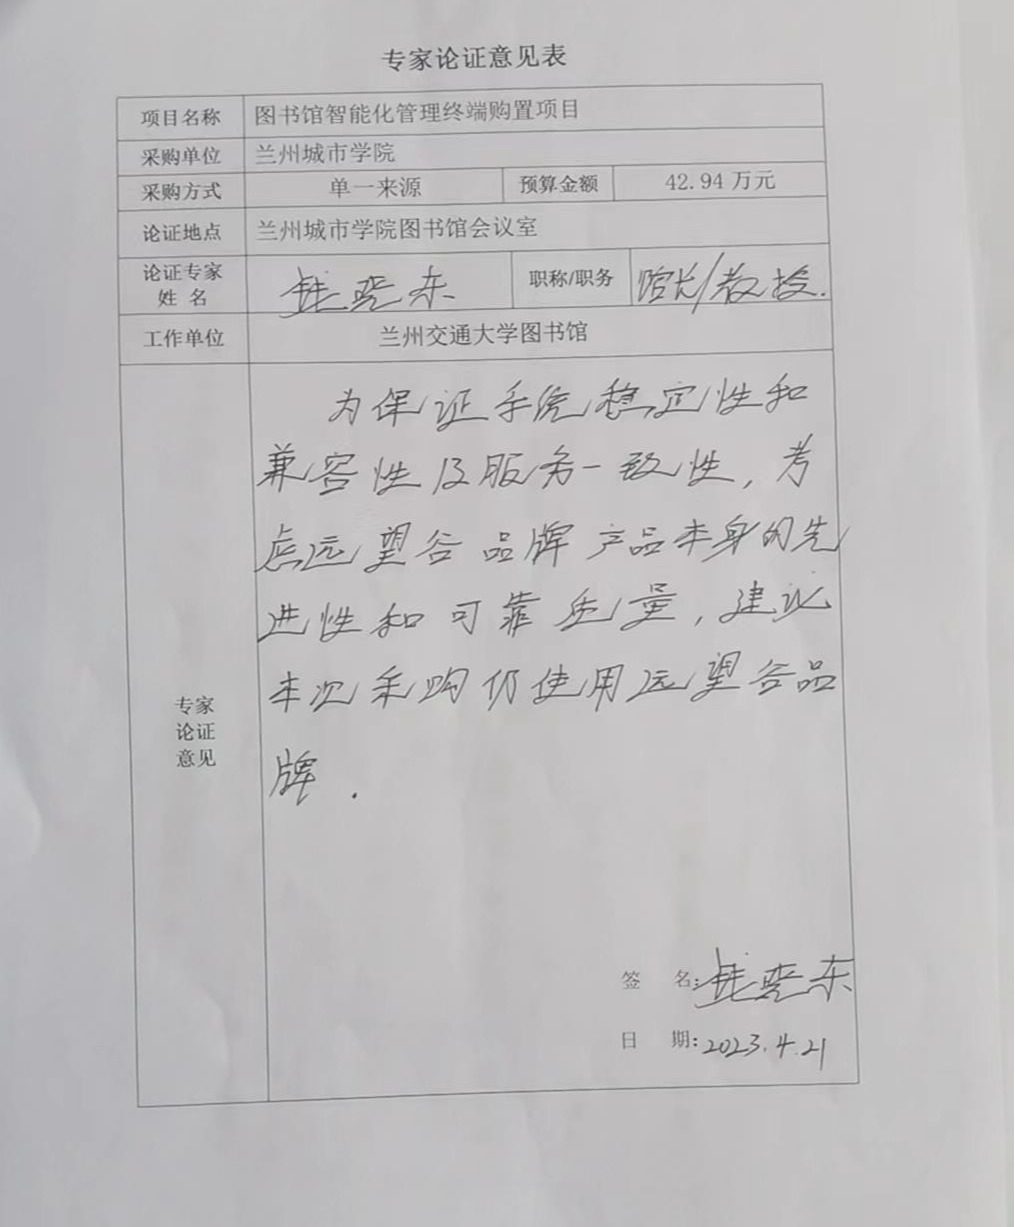 专家论证意见表
项目名称 图书馆智能化管理终端购置项目
采购单位 兰州城市学院
采购方式 单一来源 预算金额 42.94 万元
论证地点 兰州城市学院图书馆会议室
论证专家
姓 名 晓东 职称/职务 馆长/教授.
工作单位 兰州交通大学图书馆
为保证系统稳定性和
兼容性及服务一致性,考
虑远望谷品牌产品本身的先
进性和可靠质量,建议
本次采购仍使用远望谷品
牌.
专家
论证
意见
签 名: 晓东
日 期: 2023.4.21